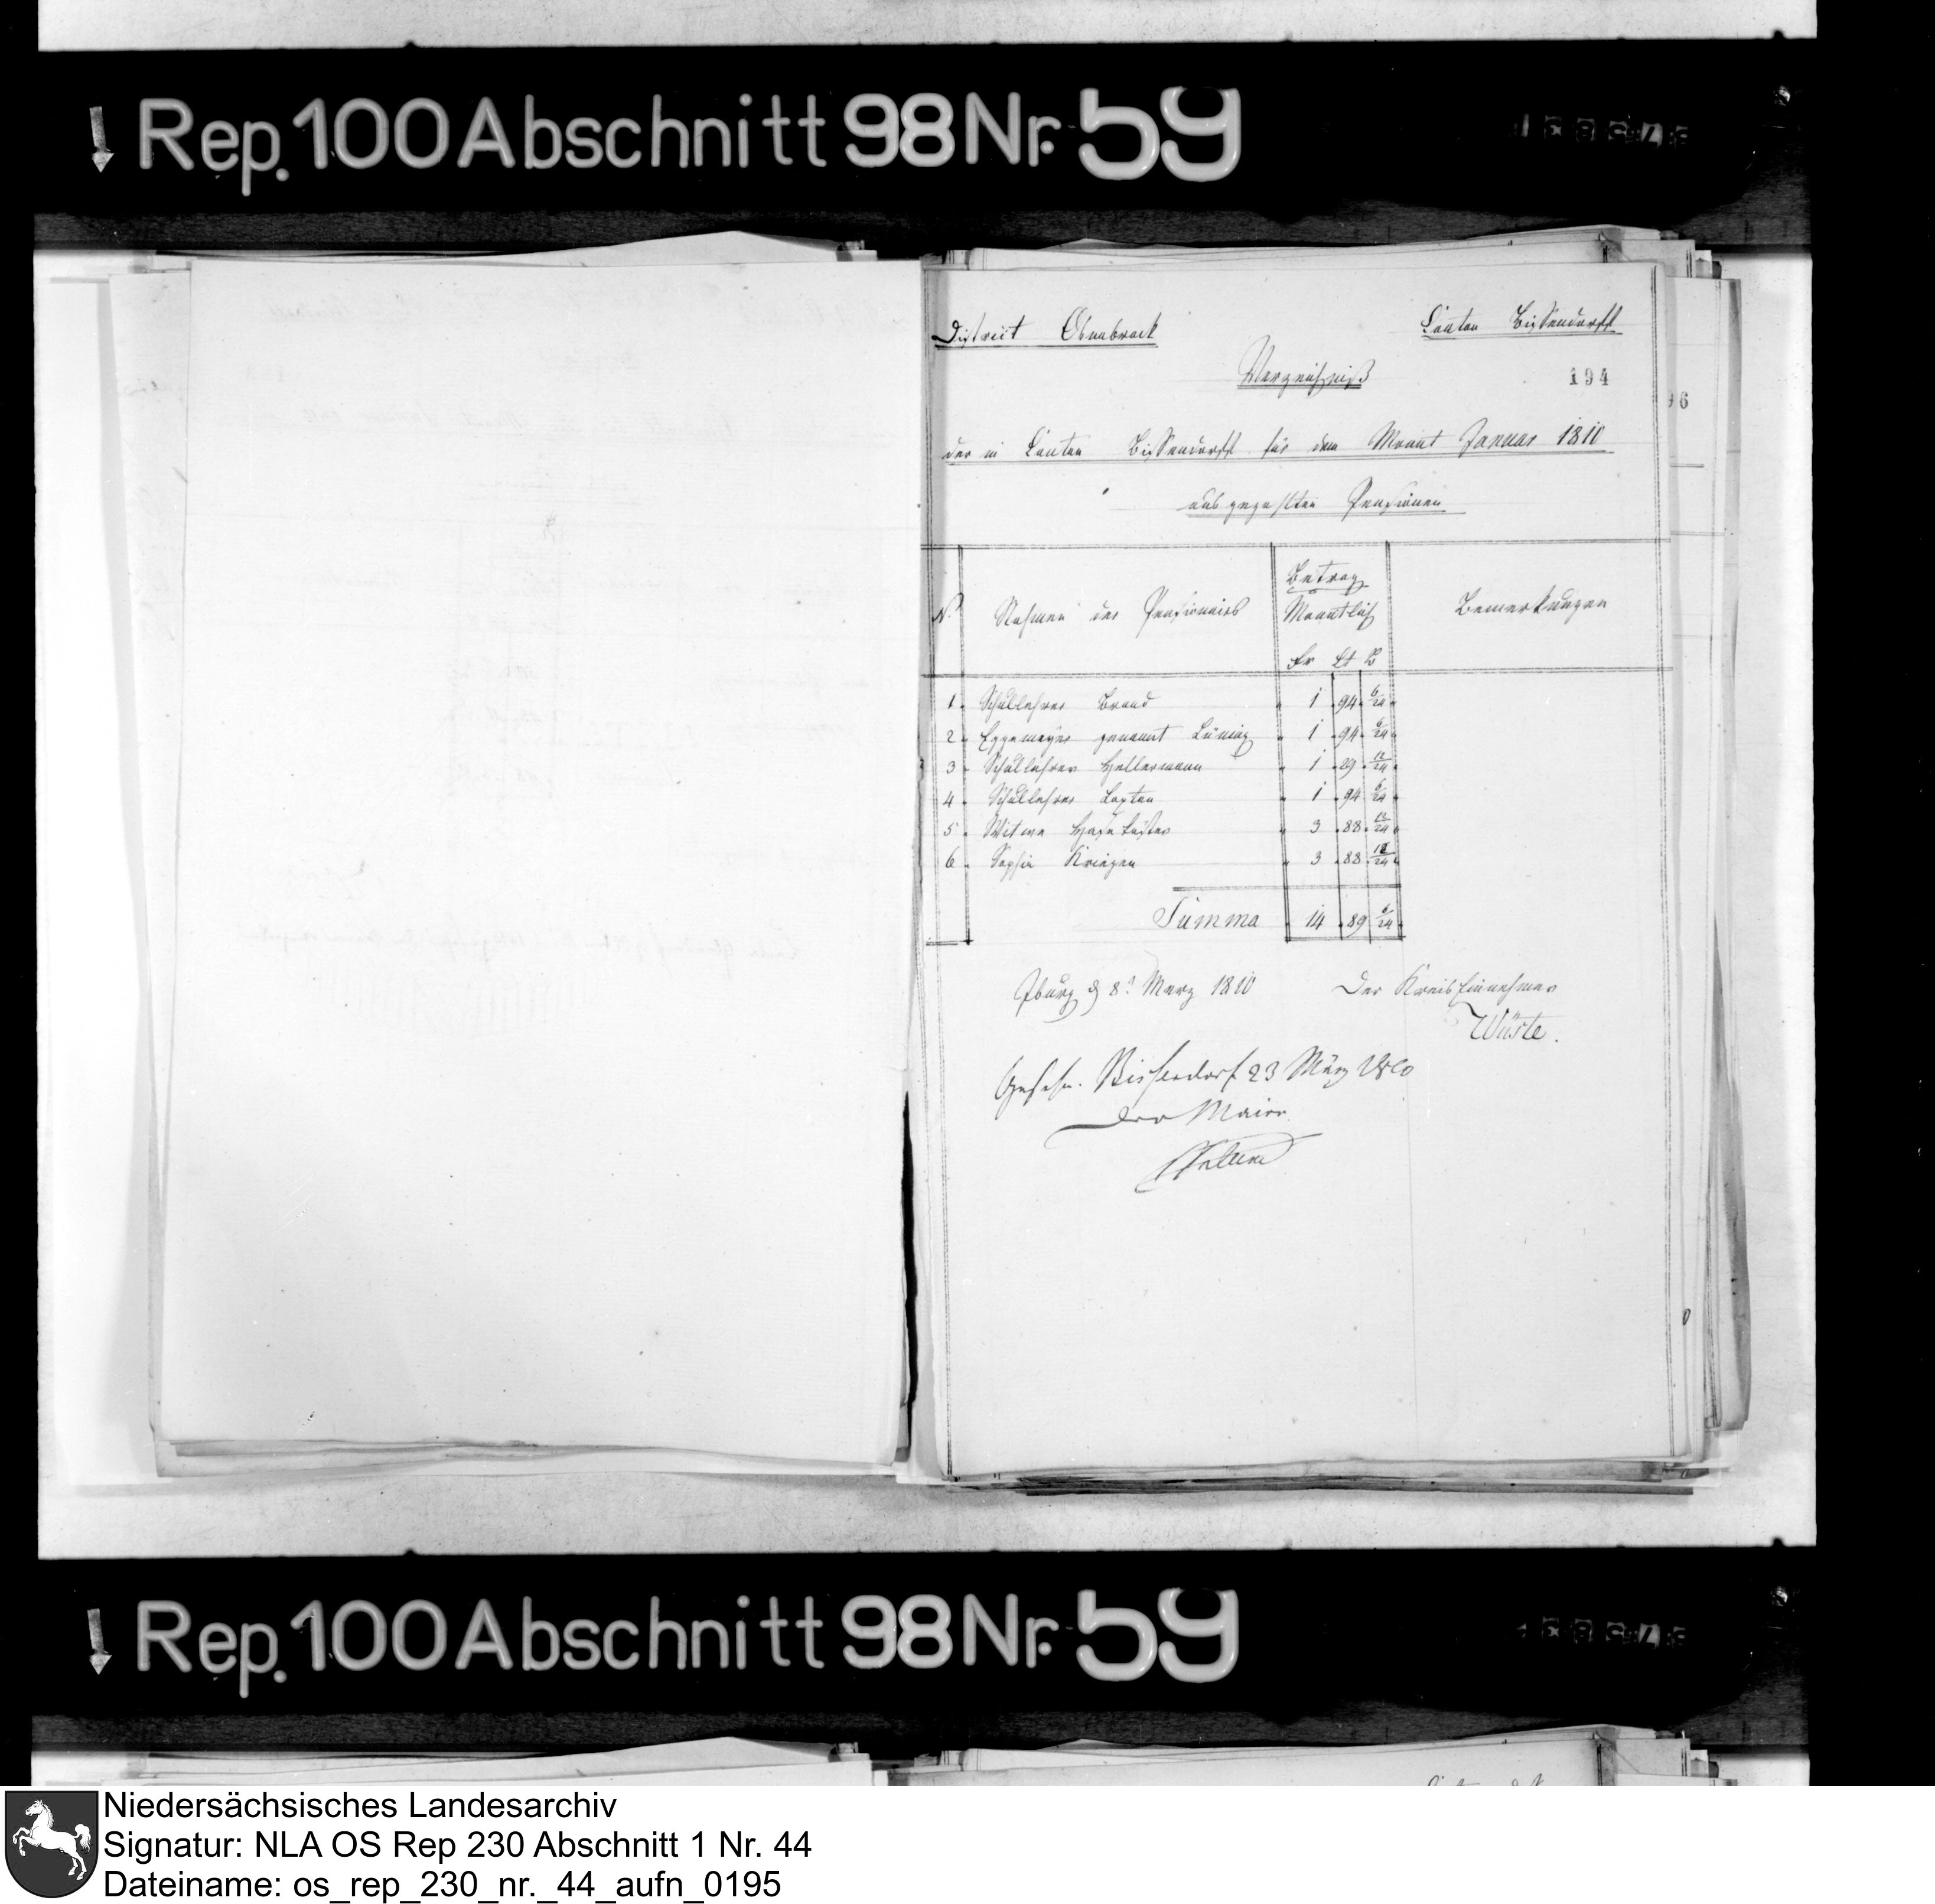 Rep. 100 Abschnitt 98 Nr. 59
District Osnabrück
Canton Bissendorff
Verzeichniß
194
96
der in Canton Bissendorff für dem Monat Januar 1810
ausgezahlten Pensionen
N. Nahmen der Pensionairs Betrag Monatlich Bemerkungen
Fr Ct
1 Schullehrer Brand 1 94 6/24
2 Eggemeyer genannt Lüning 1 94 6/24
3 Schullehrer Hellermann 1 29 12/24
4 Schullehrer 1 94 6/24
5 Witwe 3 88 12/24
6 Sophie Kriegen 3 88 12/24
Summa 14 89 6/24
Iburg d 8t Merz 1810 Der Kreis Einnehmer
Wüste.
Gesehn. Bissendorf 23 März 1810
Der Maire
Rep. 100 Abschnitt 98 Nr. 59
Niedersächsisches Landesarchiv
Signatur: NLA OS Rep 230 Abschnitt 1 Nr. 44
Dateiname: os_rep_230_nr._44_aufn_0195